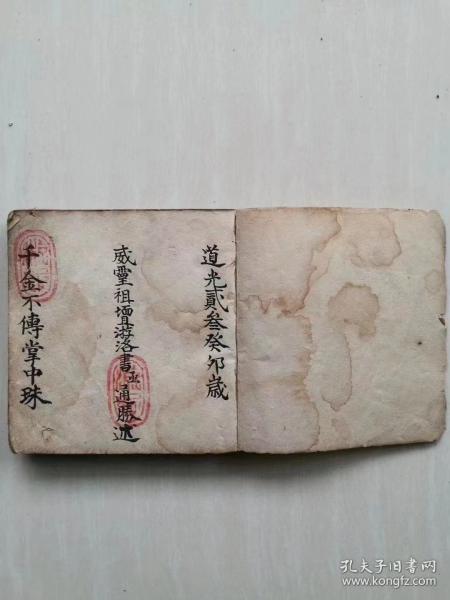 道光貳叁癸卯歲
威靈祖壇游洛書通勝述
千金不傳掌中珠
孔夫子旧书网
www.kongfz.com